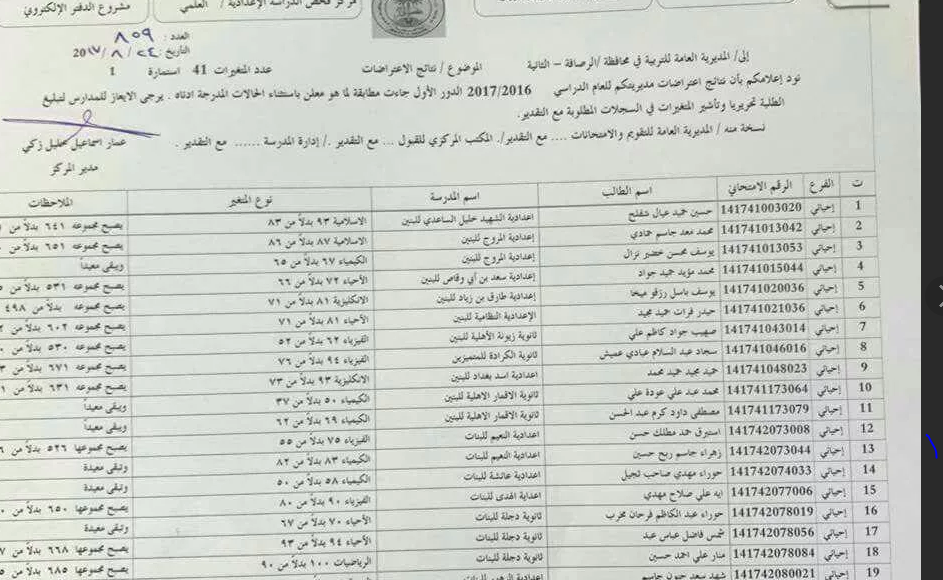 مركز فحص الدراسة الإعدادية / العلمي
مشروع الدفتر الإلكتروني
العدد: ٨٥٩
التاريخ: ٢٤ / ٨ / 2017
إلى/ المديرية العامة للتربية في محافظة /الرصافة – الثانية
الموضوع / نتائج الاعتراضات
عدد المتغيرات 41 استمارة 1
نود إعلامكم بأن نتائج اعتراضات مديريتكم للعام الدراسي 2017/2016 الدور الأول جاءت مطابقة لما هو معلن باستثناء الحالات المدرجة ادناه . يرجى الايعاز للمدارس لتبليغ
الطلبة تحريريا وتأشير المتغيرات في السجلات المطلوبة مع التقدير.
نسخة منه / المديرية العامة للتقويم والامتحانات .... مع التقدير/. المكتب المركزي للقبول ... مع التقدير ./ إدارة المدرسة ...... مع التقدير .
عمار اسماعيل خليل زكي
مدير المركز
ت الفرع الرقم الامتحاني اسم الطالب اسم المدرسة نوع المتغير الملاحظات
1 إحيائي 141741003020 حسين حميد عيال شفلح اعدادية الشهيد خليل الساعدي للبنين الاسلامية ٩٣ بدلاً من ٨٣ يصبح مجموعه ٦٤١ بدلاً من
2 إحيائي 141741013042 محمد معد جاسم حمادي إعدادية المروج للبنين الاسلامية ٨٧ بدلاً من ٨٦ يصبح مجموعه ٦٥١ بدلاً من
3 إحيائي 141741013053 يوسف محسن خضير نزال إعدادية المروج للبنين الكيمياء ٦٧ بدلاً من ٦٥ ويبقى معيداً
4 إحيائي 141741015044 محمد مؤيد حميد جواد إعدادية سعد بن أبي وقاص للبنين الأحياء ٧٢ بدلاً من ٦٦ يصبح مجموعه ٥٣١ بدلاً من
5 إحيائي 141741020036 يوسف باسل رزقو ميخا إعدادية طارق بن زياد للبنين الانكليزية ٨١ بدلاً من ٧١ يصبح مجموعه بدلاً من ٤٩٨
6 إحيائي 141741021036 حيدر فرات حميد مجيد الإعدادية النظامية للبنين الأحياء ٨١ بدلاً من ٧١ يصبح مجموعه ٦٠٢ بدلاً من
7 إحيائي 141741043014 صهيب جواد كاظم علي ثانوية زيونة الأهلية للبنين الفيزياء ٦٢ بدلاً من ٥٢ يصبح مجموعه ٥٣٠ بدلاً من
8 إحيائي 141741046016 سجاد عبد السلام عبادي عميش ثانوية الكرادة للمتميزين الفيزياء ٩٤ بدلاً من ٧٦ يصبح مجموعه ٦٧١ بدلاً من
9 إحيائي 141741048023 حميد مجيد حميد محمد اعدادية اسد بغداد للبنين الانكليزية ٩٣ بدلاً من ٧٣ يصبح مجموعه ٦٣١ بدلاً من
10 إحيائي 141741173064 محمد عبد علي عودة علي ثانوية الاقمار الاهلية للبنين الكيمياء ٥٠ بدلاً من ٣٧ ويبقى معيداً
11 إحيائي 141741173079 مصطفى داود كرم عبد الحسن ثانوية الاقمار الاهلية للبنين الكيمياء ٦٩ بدلاً من ٦٢ ويبقى معيداً
12 إحيائي 141742073008 استبرق حمد مطلك حسن اعدادية النعيم للبنات الفيزياء ٧٥ بدلاً من ٥٥ يصبح مجموعها ٥٢٦ بدلاً من
13 إحيائي 141742073044 زهراء جاسم ربح حسين اعدادية النعيم للبنات الكيمياء ٨٣ بدلاً من ٨٢ وتبقى معيدة
14 إحيائي 141742074033 حوراء مهدي صاحب ثجيل اعدادية عائشة للبنات الكيمياء ٥٨ بدلاً من ٥٠ وتبقى معيدة
15 إحيائي 141742077006 ايه علي صلاح مهدي اعداية الهدى للبنات الفيزياء ٩٠ بدلاً من ٨٠ يصبح مجموعها ٦٥٠ بدلاً من
16 إحيائي 141742078019 حوراء عبد الكاظم فرحان مخرب ثانوية دجلة للبنات الأحياء ٧٠ بدلاً من ٦٧ وتبقى معيدة
17 إحيائي 141742078056 شمس فاضل عباس عبد ثانوية دجلة للبنات الأحياء ٩٤ بدلاً من ٩٣ يصبح مجموعها ٦٦٨ بدلاً من
18 إحيائي 141742078084 منار علي احمد حسين ثانوية دجلة للبنات الرياضيات ١٠٠ بدلاً من ٩٠ يصبح مجموعها ٦٨٥ بدلاً من
19 إحيائي 141742080021 شهد سعد جاسم